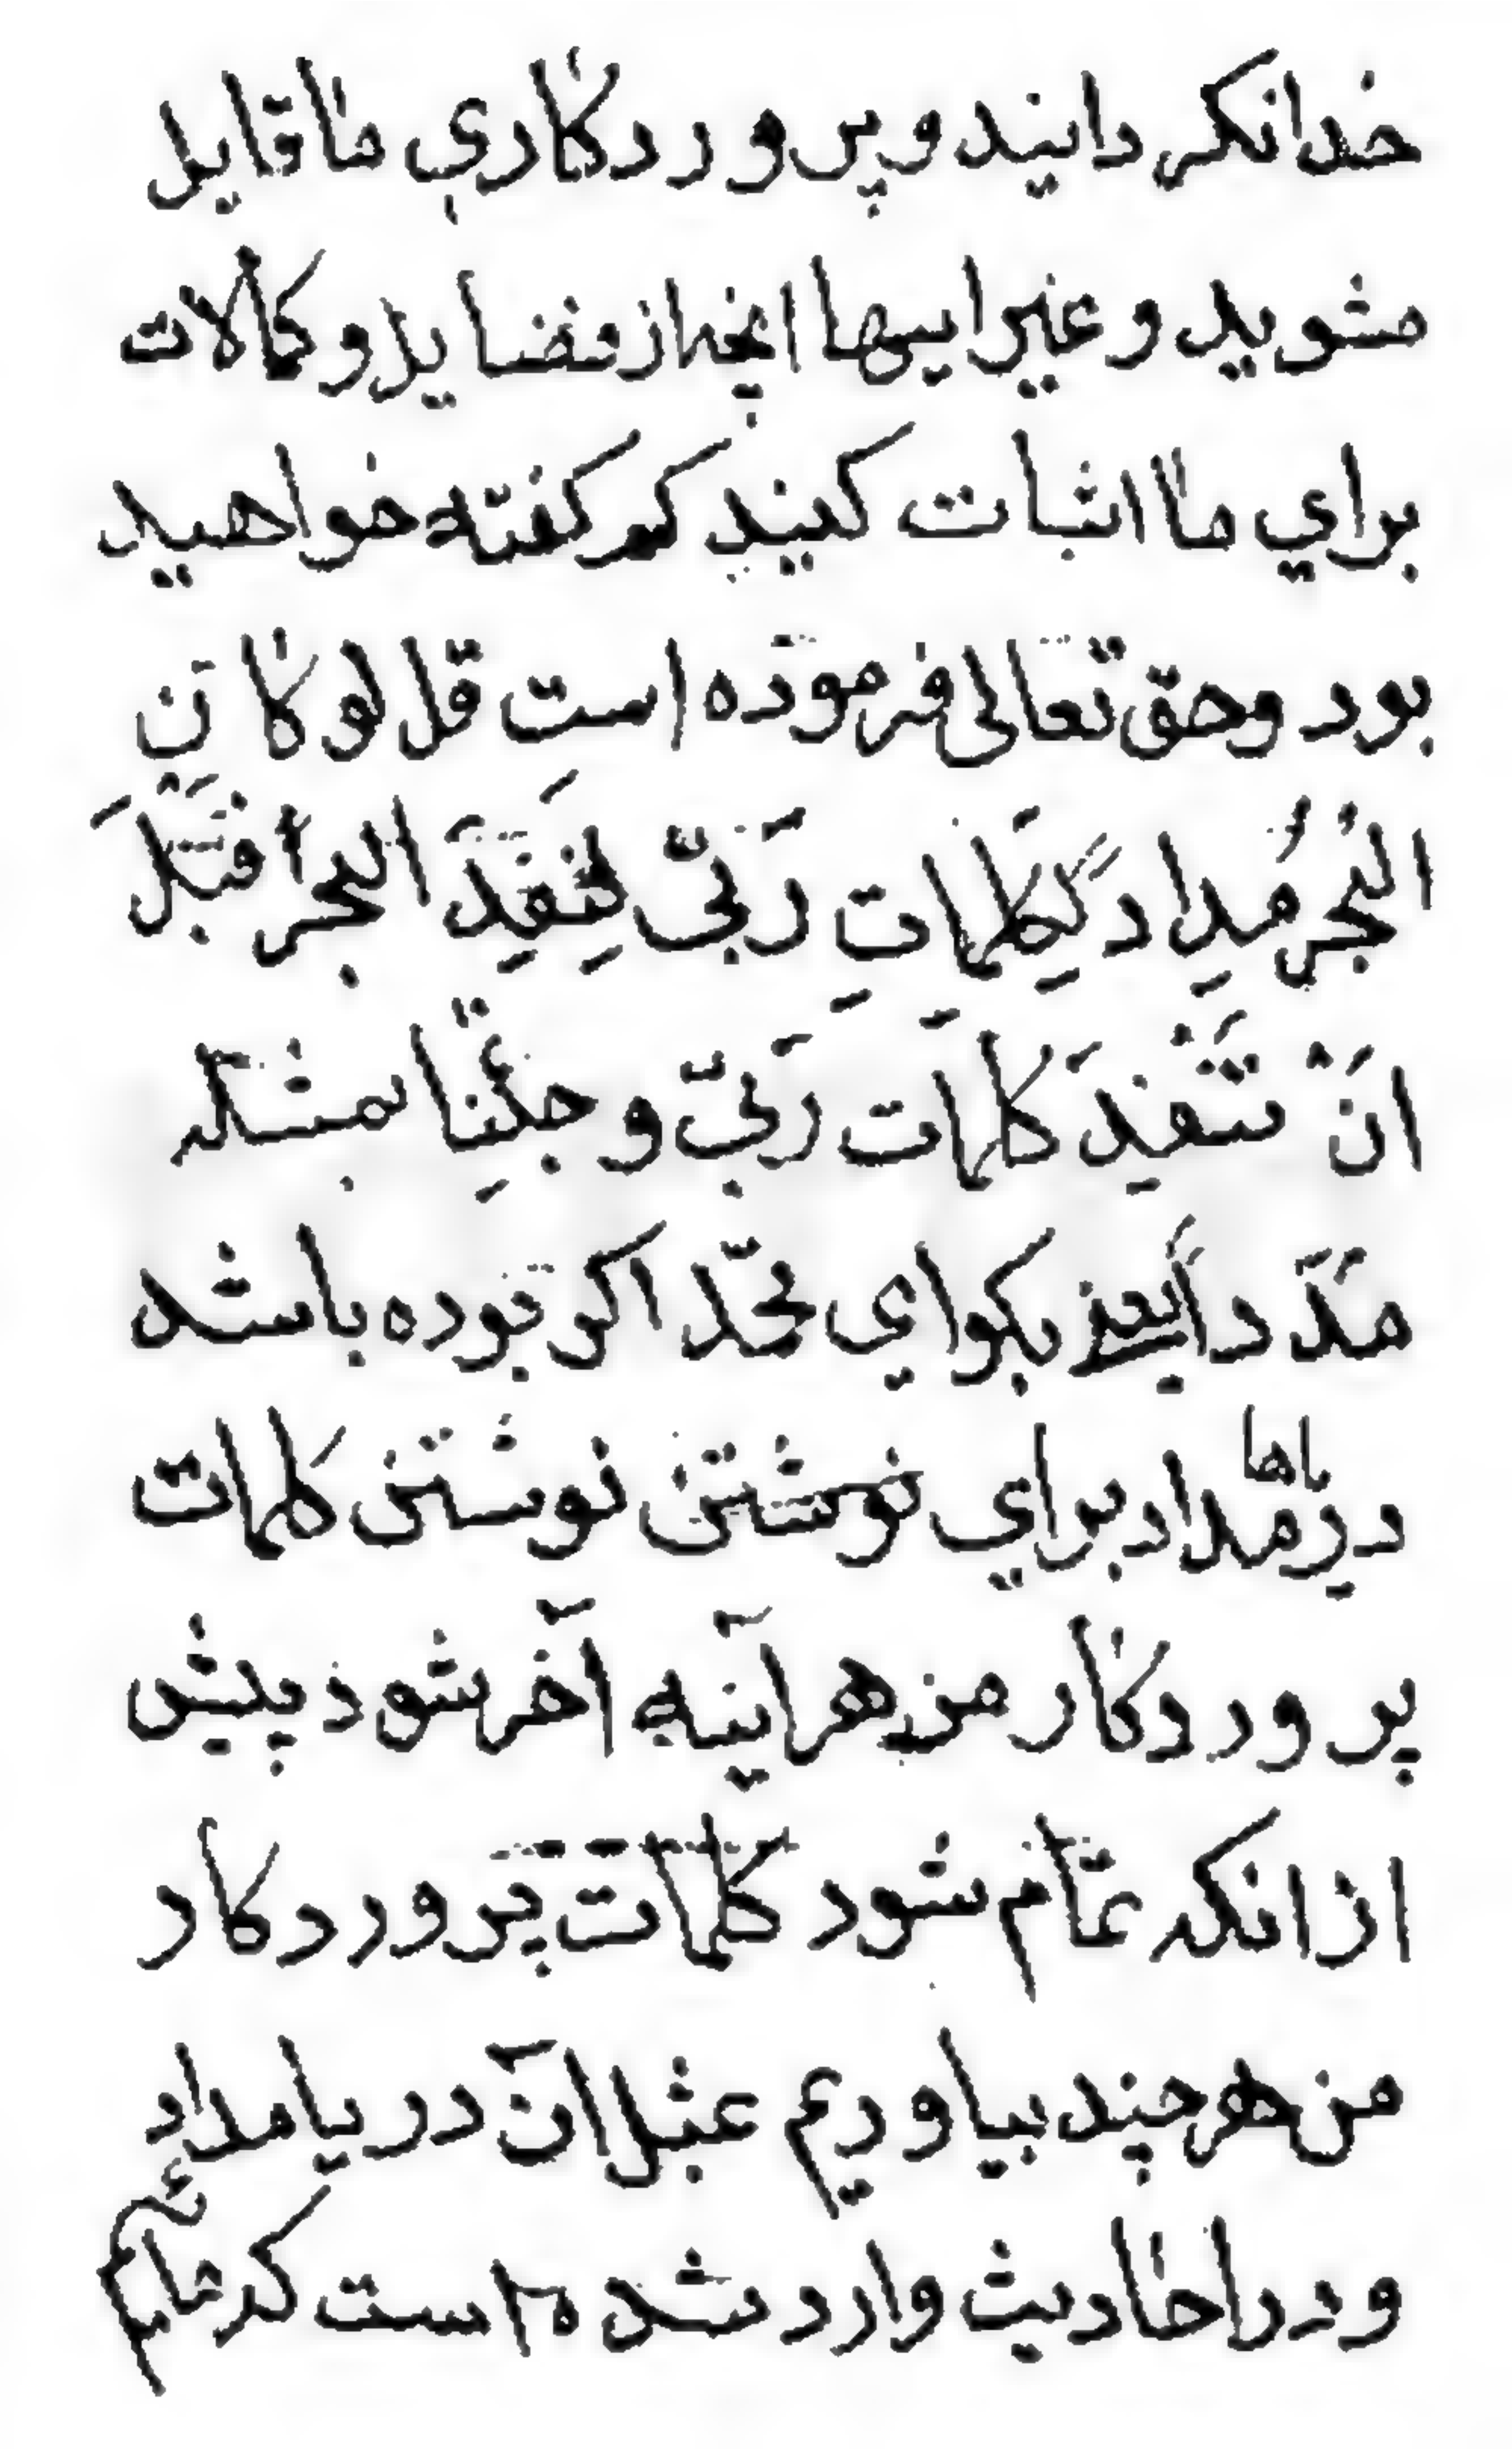 خدا نكردانيد و پرورد كاري ما قايل
مشويد و غير اينها انچه از فضايل و كمالات
براي ما اثبات كنيد كم كفته خواهيد
بود و حق تعالى فرموده است قل لو كان
البُحرُ مُدِاد لِكِلمَاتِ رَبّى لنِفَدِ البحر قبلَ
انَْ تنفدَ كلمات رَبىّ و جِئنا بمثله
مَدَداً يعنى بكو اى محمّد اكر بوده باشد
درياها مداد براي نوشتن نوشتن كلمات
پروردكار من هرآينه آخر شود پيش
از انكه تمام شود كلمات پروردكار
من هر چند بياوريم بمثل آن دريا مداد
و در احاديث وارد شده است كه مائيم